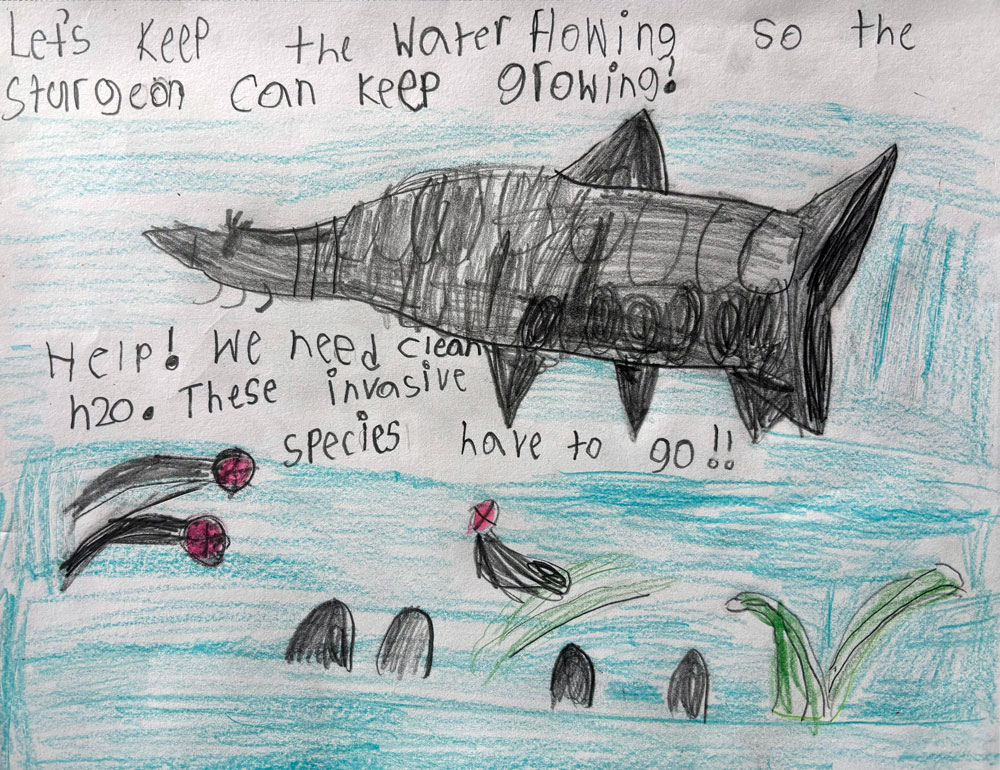 Let's Keep the Water flowing so the
sturgeon can keep growing!
Help! We need clean
h2o. These invasive
species have to go!!